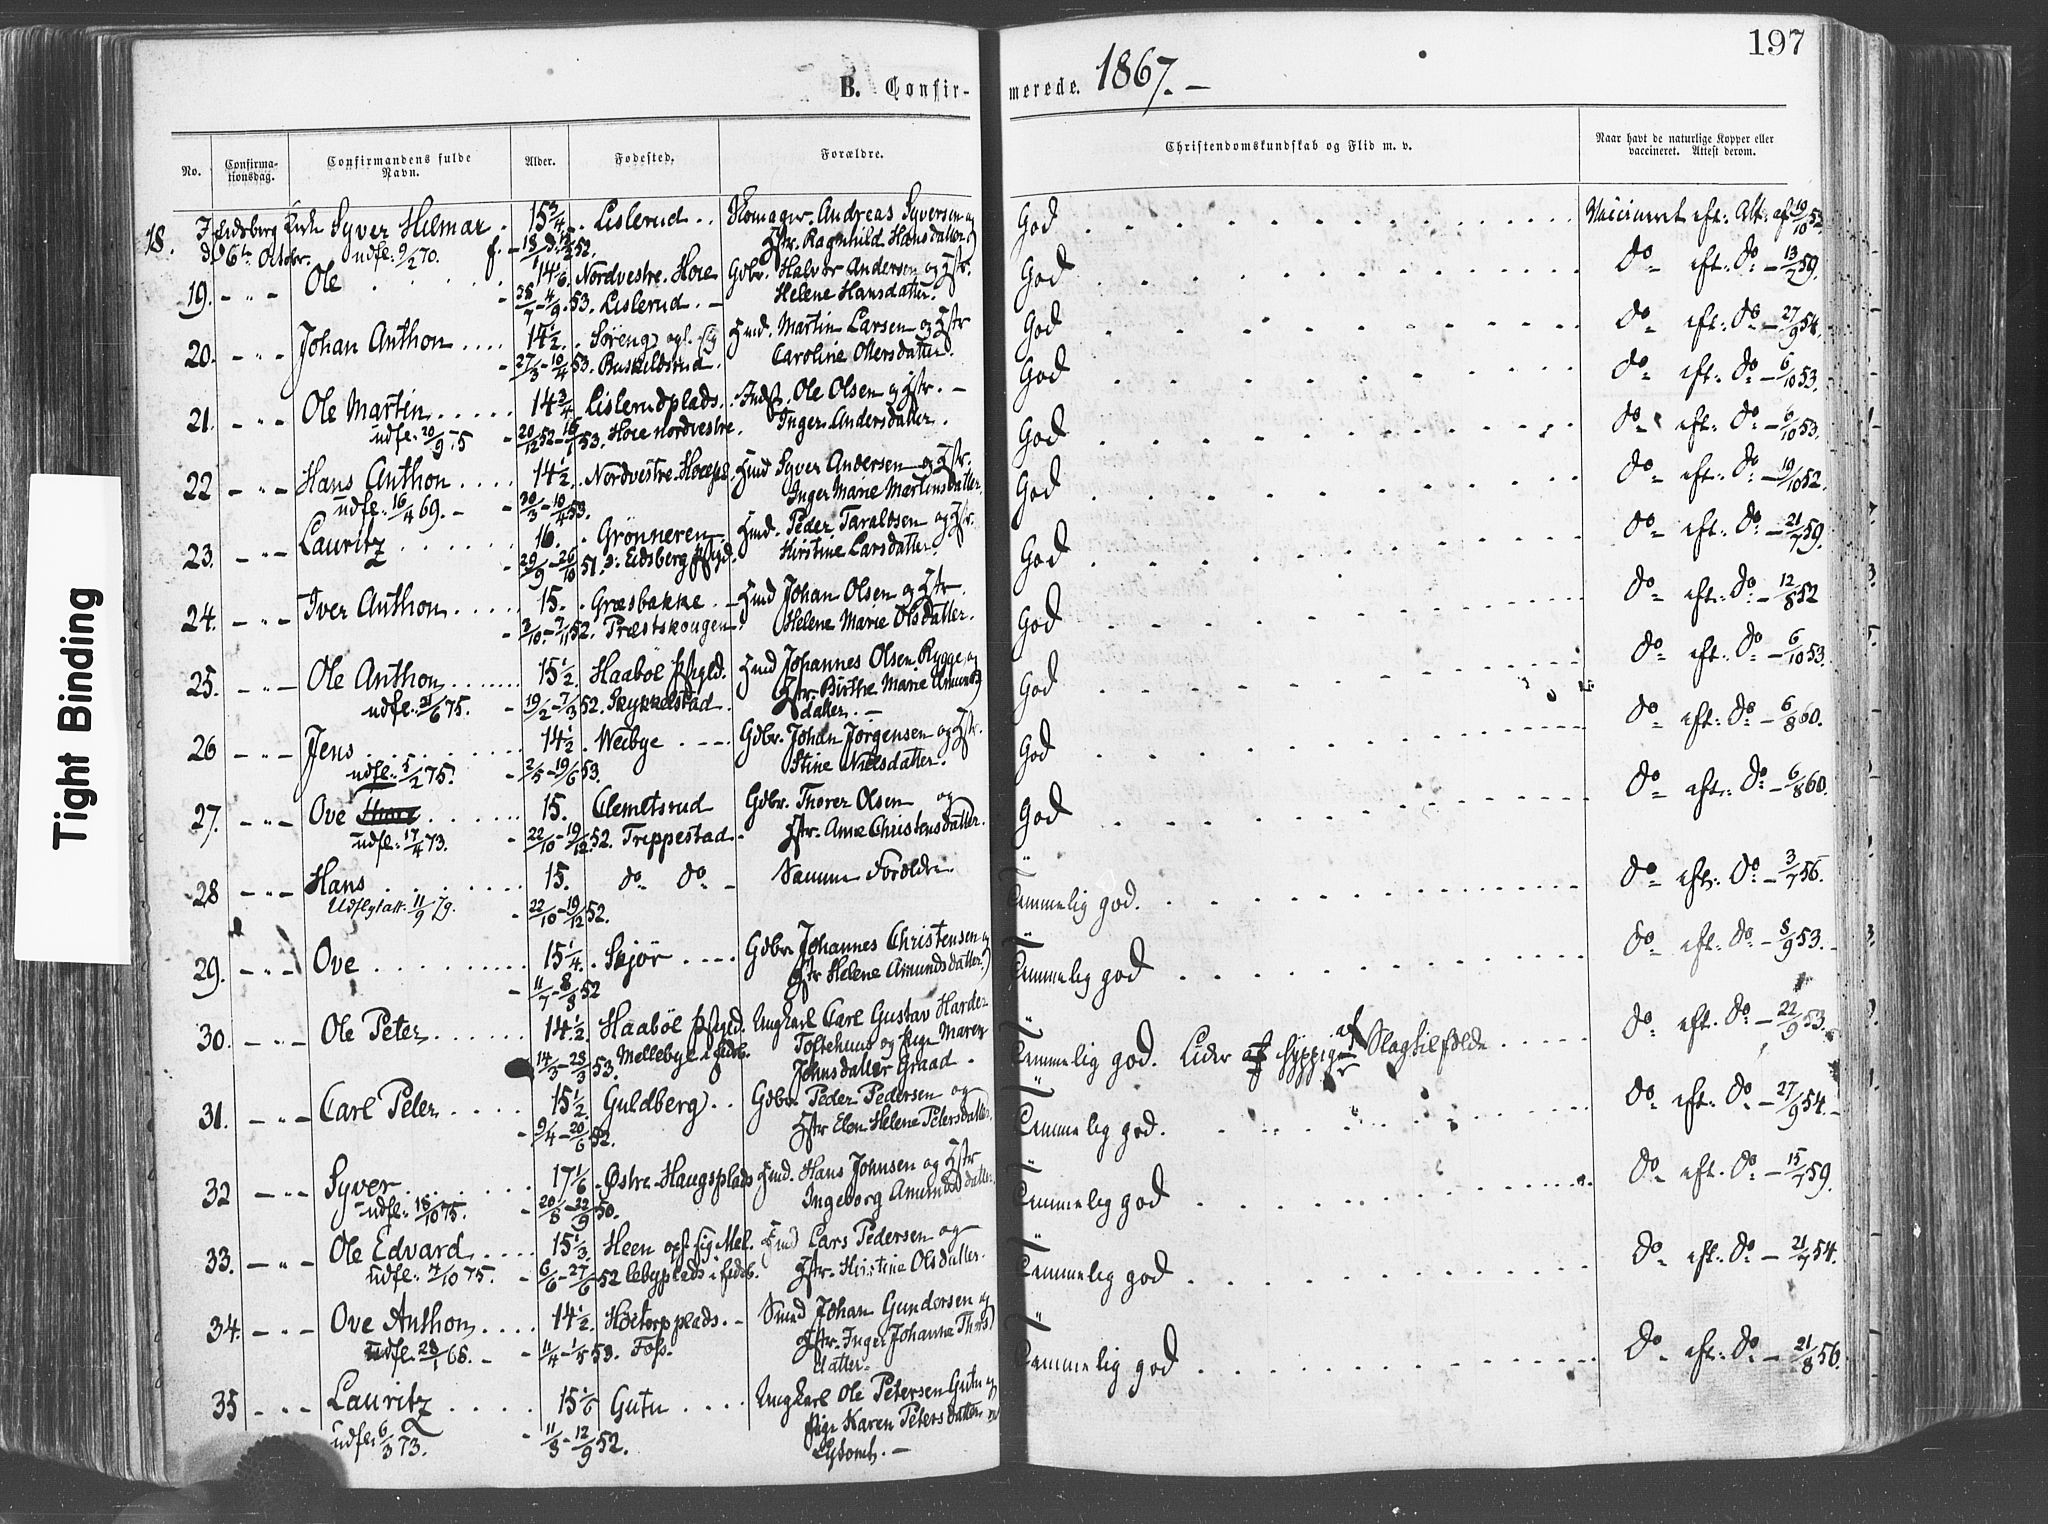 197
B. Confir-
merede. 1867. -
No.
Confirma-
tionsdag.
Confirmandens fulde
Navn.
Alder.
Fødested.
Forældre.
Christendomskundskab og Flid m. v.
Naar havt de naturlige Kopper eller
vaccineret. Attest derom.
18. I Eidsberg Kirke Syver Hilmar 15 3/4 Lislerud Skomager Andreas Syversen og God Vaccineret eft. Att. af 19/10 53
d. 6te October. udfl. 9/2 70. 52. Hstr. Ragnhild Hansdatter
19. Ole 14 1/6 Nordvestre Hoie Gdbr. Halvor Andersen og Hstr. God do eft. do - 13/7 59.
4/9 53. Lislerud Helene Hansdatter.
20. Johan Anthon 14 1/2 Søreng Hmd. Martin Larsen og Hstr God do eft. do - 27/9 54.
27/3 - 10/4 53. Buskeldsrud. Caroline Olsersdatter.
21. Ole Martin 14 3/4 Lislerudplads. Indst. Ole Olsen og Hstr. God do eft. do - 6/10 53.
udfl. 20/9 75 20/12 52 - 16/1 53. Hoie nordvestre. Inger Andersdatter.
22 Hans Anthon 14 1/2 Nordvestre Hoiepl. Hmd Syver Andersen og Hstr. God do eft. do - 6/10 53.
udfl. 16/4 69. 20/3 - 10/4 53. Inger Marie Martinsdatter.
23. Lauritz 16. Grønneren Hmd. Peder Taraldsen og Hstr. God do eft. do - 19/10 52.
29/9 - 26/10 51. Eidsberg Pstgd. Kirstine Larsdatter.
24. Iver Anthon 15. Græsbakke Hmd Johan Olsen og Hstr. God do eft. do - 21/7 59.
3/10 - 7/11 52. Præstskougen. Helene Marie Olsdatter.
25. Ole Anthon 15 1/2 Haabøl Pstgld. Hmd Johannes Olsen Rygge og God do eft. do - 12/8 52
udfl. 21/6 75. 19/2 - 7/3 52. Skykkelstad. Hstr. Birthe Marie Amunds
datter.
26 Jens 14 1/2 Weibye Gdbr. Johan Jørgensen og Hstr. God do eft. do - 6/10 53.
udfl. 5/2 75. 2/5 - 19/6 53. Stine Nielsdatter.
27. Ove 15. Clemetsrud Gdbr. Thorer Olsen og God do eft. do - 6/8 60.
udfl. 17/4 73. 22/10 - 19/12 52. Treppestad Hstr. Anne Christensdatter.
28 Hans 15. do do Samme Forældre God do eft. do - 6/8 60.
Udflytatt. 11/9 79. 22/10 - 19/12 52.
29. Ove 15 1/4 Skjør Gdbr. Johannes Christensen og Temmelig god. do eft. do - 3/7 56.
11/7 - 8/8 52 Hstr Helene Amundsdatter.
30. Ole Peter 14 1/2 Haabøl Pstgld. Ungkarl Carl Gustav Harder Temmelig god do eft. do - 5/9 53.
14/3 - 28/3 53. Mellebye i Eidsb. Toftehuus og Pige Maren
Johnsdatter Graad.
31. Carl Peter 15 1/2 Guldberg Gdbr. Peder Pedersen og Temmelig god. Lider af hyppige Slagtilfælde do eft. do - 22/9 53.
9/4 - 20/6 52. Hstr Elen Helene Petersdatter.
32 Syver 17 1/6 Østre Haugsplads Hmd. Hans Johnsen og Hstr Temmelig god. do eft. do - 27/9 54.
udfl. 15/10 75. 20/8 - 22/9 50. Ingeborg Amundsdatter.
33. Ole Edvard 15 1/3 Heen Mel- Hmd Lars Pedersen og Temmelig god do eft. do - 15/7 59.
udfl. 4/10 75. 6/6 - 27/6 52 lebyplads i Eidsb. Hstr. Kirstine Olsdatter.
34. Ove Anthon 14 1/2 Høitorpplads. Smed Johan Gundersen og Temmelig god do eft. do - 21/7 54.
udfl. 23/1 68. 11/4 - 1/5 53. Foss. Hstr. Inger Johanne Thors
datter.
35 Lauritz 15 1/6 Gutu Ungkarl Ole Petersen Gutu og Temmelig god do eft. do - 21/8 56.
udfl. 6/3 73. 11/8 - 12/9 52. Pige Karen Petersdatter
Tight Binding